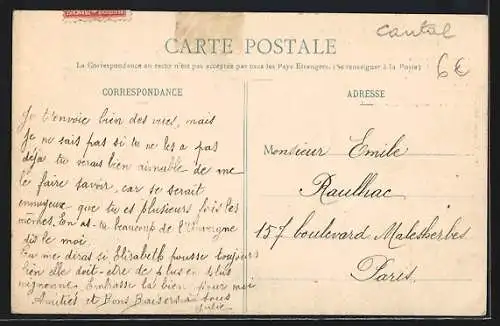 CARTE POSTALE
Cantal
La Correspondance au recto n'est pas acceptée par tous les Pays Etrangers. (Se renseigner à la Poste)
6€
CORRESPONDANCE
ADRESSE
Je t'envoie bien des vues, mais
je ne sais pas si tu ne les a pas
déjà, tu serais bien aimable de me
le faire savoir, car se serait
ennuyeux que tu es plusieurs fois les
mêmes. En as-tu beaucoup de l'Auvergne
dis le moi.
Tu me diras si Elisabeth pousse toujours
bien elle doit-etre de plus en plus
mignonne. Embrasse la bien pour moi
Amitiés et Bons Baisers à tous
Julie
Monsieur Emile
Raulhac
157 boulevard Malesherbes
Paris